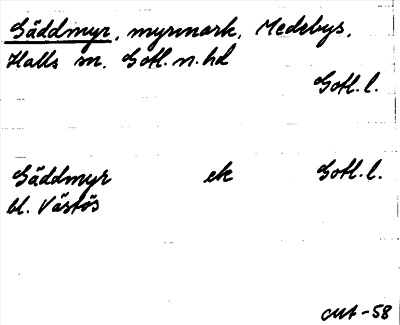 Gäddmyr, myrmark, Medebys,
Halls sn, Gotl. n. hd
Gotl. l.
Gäddmyr ek Gotl. l.
bl. Västös
CMA -58